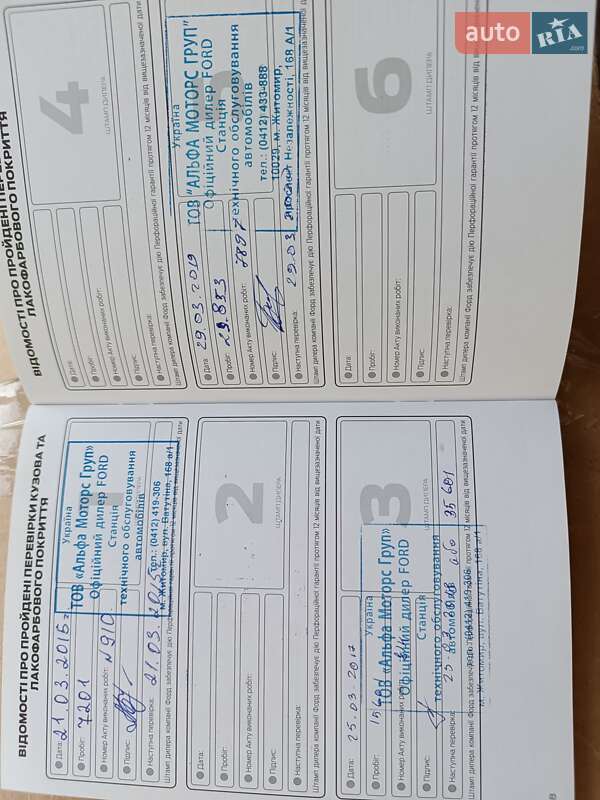 ВІДОМОСТІ ПРО ПРОЙДЕНІ ПЕРЕВІРКИ КУЗОВА ТА
ЛАКОФАРБОВОГО ПОКРИТТЯ
1
Україна
ТОВ «Альфа Моторс Груп»
Офіційний дилер FORD
Станція
технічного обслуговування
автомобілів
тел.: (0412) 419-306
м. Житомир, вул. Ватутіна, 168 а/1
Дата: 21.03.2015 г
Пробіг: 7201
Номер Акту виконаних робіт: N910
Підпис:
Наступна перевірка: 21.03.
Штамп дилера компанії Форд забезпечує дію Перфораційної гарантії протягом 12 місяців від вищезазначеної дати
2
ШТАМП ДИЛЕРА
Дата:
Пробіг:
Номер Акту виконаних робіт:
Підпис:
Наступна перевірка:
Штамп дилера компанії Форд забезпечує дію Перфораційної гарантії протягом 12 місяців від вищезазначеної дати
3
ШТАМП ДИЛЕРА
Україна
ТОВ «Альфа Моторс Груп»
Офіційний дилер FORD
Станція
технічного обслуговування
автомобілів
тел.: (0412) 419-306
м. Житомир, вул. Ватутіна, 168 а/1
Дата: 25.03.2017
Пробіг: 15681
Номер Акту виконаних робіт:
Підпис:
Наступна перевірка: 25.03.2018 або 35681
Штамп дилера компанії Форд забезпечує дію Перфораційної гарантії протягом 12 місяців від вищезазначеної дати
8
ВІДОМОСТІ ПРО ПРОЙДЕНІ
ЛАКОФАРБОВОГО ПОКРИТТЯ
4
ШТАМП ДИЛЕРА
Дата:
Пробіг:
Номер Акту виконаних робіт:
Підпис:
Наступна перевірка:
Штамп дилера компанії Форд забезпечує дію Перфораційної гарантії протягом 12 місяців від вищезазначеної дати
Україна
ТОВ "АЛЬФА МОТОРС ГРУП"
Офіційний дилер FORD
Станція
технічного обслуговування
автомобілів
тел.: (0412) 433-888
10029, м. Житомир,
проспект Незалежності, 168 А/1
Дата: 29.03.2019
Пробіг: 29.853
Номер Акту виконаних робіт: 7897
Підпис:
Наступна перевірка: 29.03
Штамп дилера компанії Форд забезпечує дію Перфораційної гарантії протягом 12 місяців від вищезазначеної дати
6
ШТАМП ДИЛЕРА
Дата:
Пробіг:
Номер Акту виконаних робіт:
Підпис:
Наступна перевірка:
Штамп дилера компанії Форд забезпечує дію Перфораційної гарантії протягом 12 місяців від вищезазначеної дати
auto RIA .com